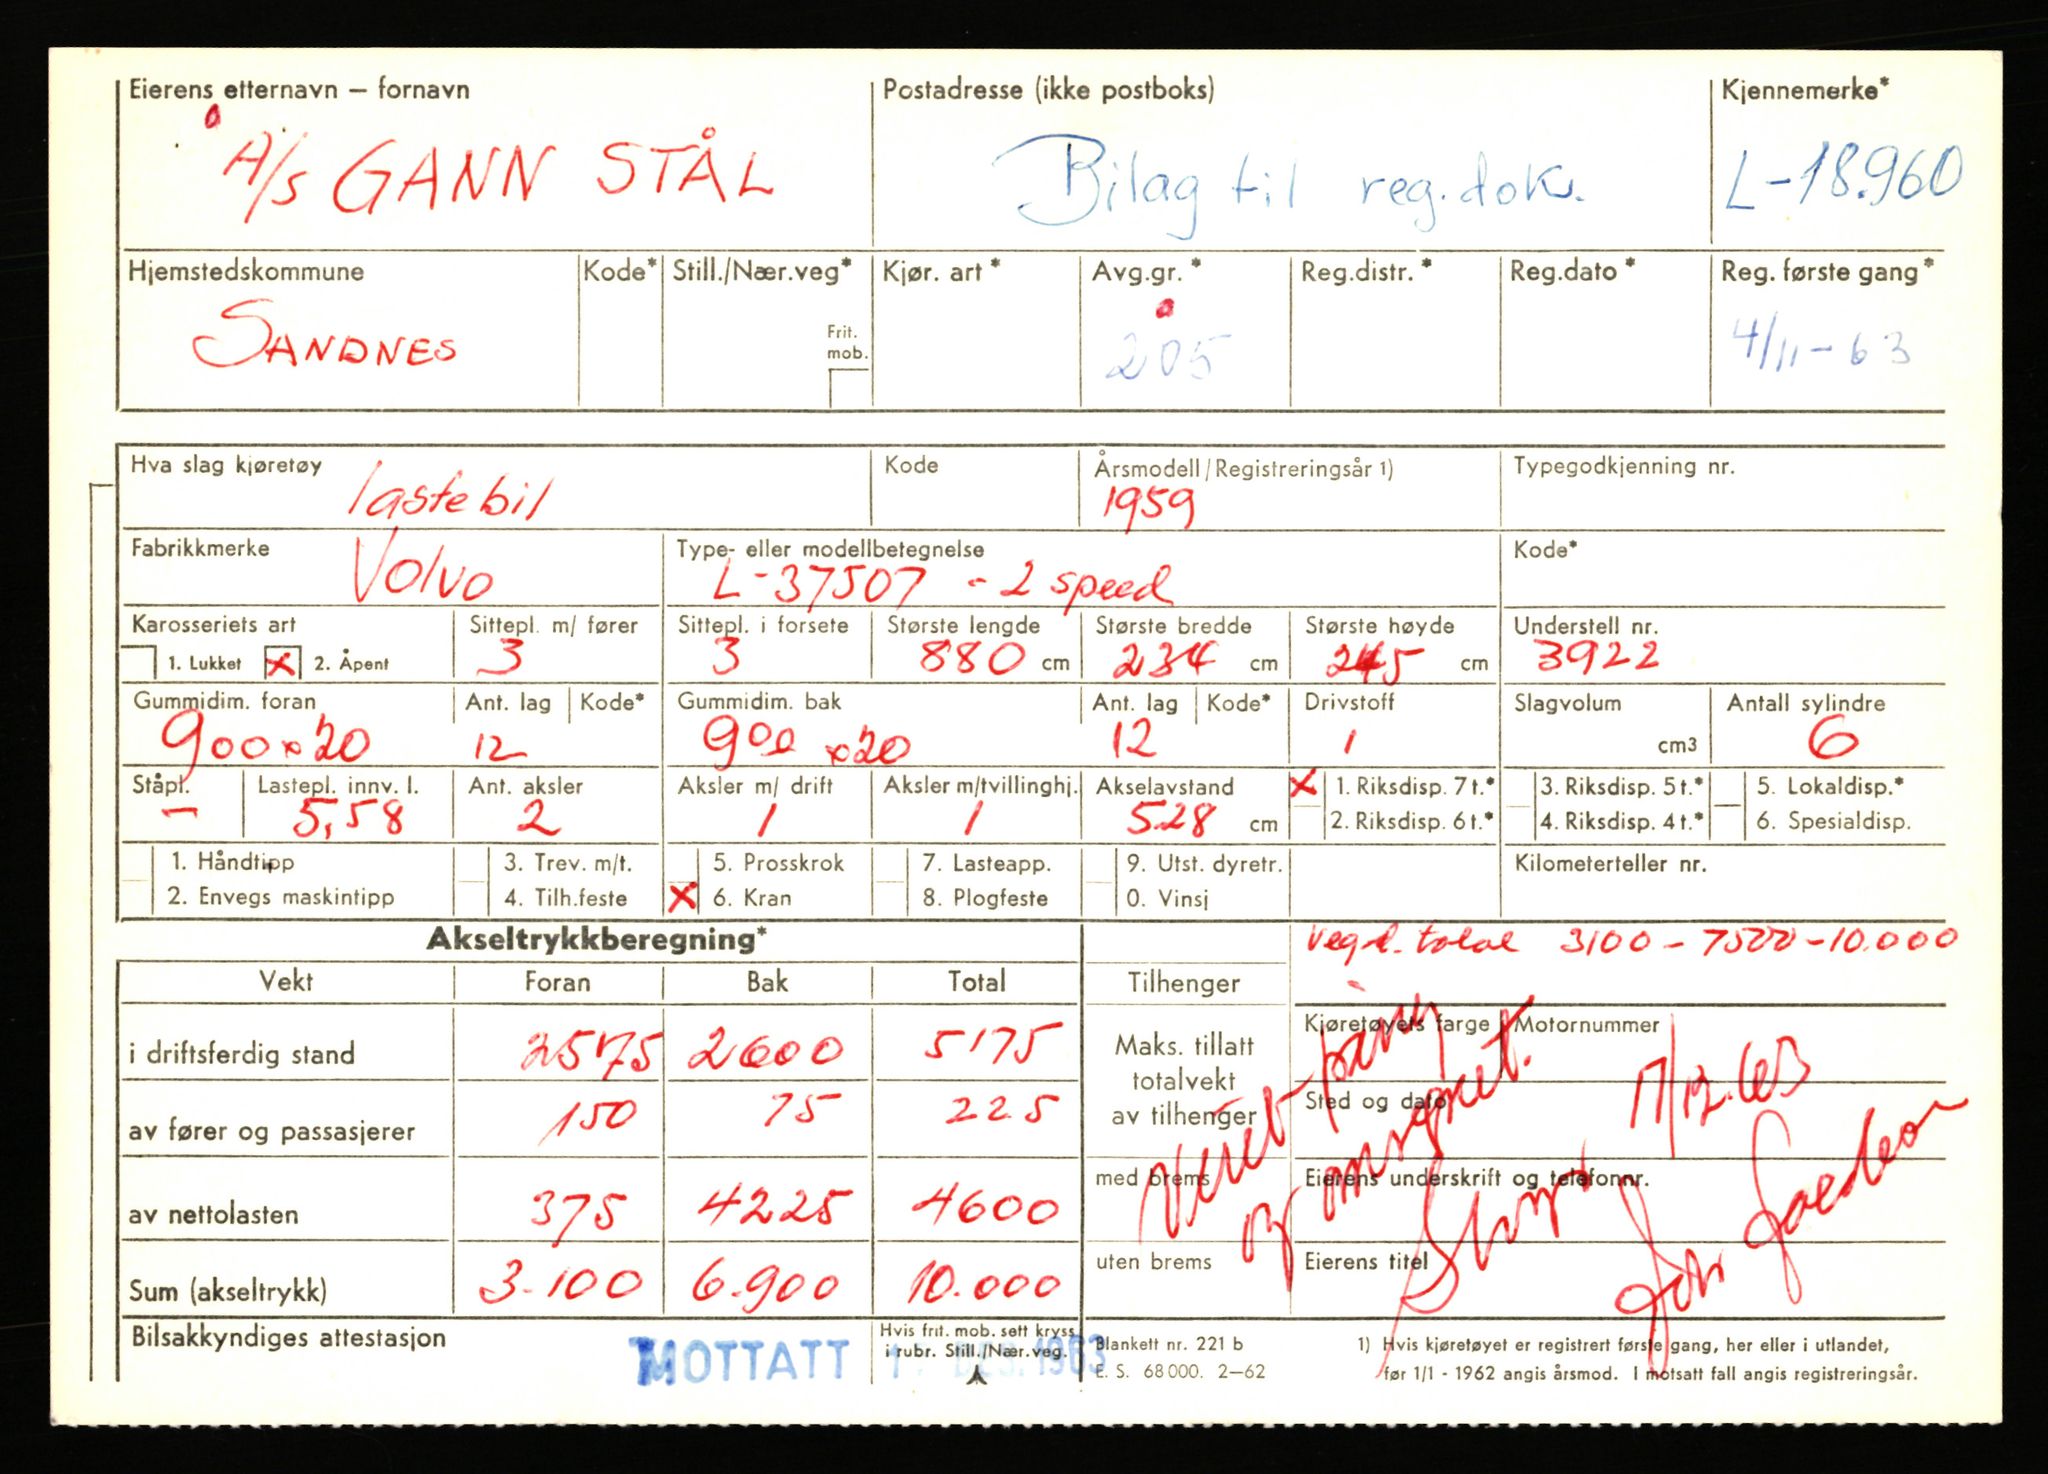 Eierens etternavn – fornavn
Postadresse (ikke postboks)
Kjennemerke*
A/S GANN STÅL
Bilag til reg.dok.
L-18.960
Hjemstedskommune
Kode*
Still./Nær.veg*
Kjør. art *
Avg.gr. *
Reg.distr. *
Reg.dato *
Reg. første gang*
SANDNES
Frit. mob.
205
4/11-63
Hva slag kjøretøy
Kode
Årsmodell/Registreringsår 1)
Typegodkjenning nr.
lastebil
1959
Fabrikkmerke
Type- eller modellbetegnelse
Kode*
Volvo
L-37507 - 2 speed
Karosseriets art
Sittepl. m/ fører
Sittepl. i forsete
Største lengde
Største bredde
Største høyde
Understell nr.
1. Lukket x 2. Åpent
3
3
880 cm
234 cm
245 cm
3922
Gummidim. foran
Ant. lag
Kode*
Gummidim. bak
Ant. lag
Kode*
Drivstoff
Slagvolum
Antall sylindre
900x20
12
900 x20
12
1
cm3
6
Ståpl.
Lastepl. innv. l.
Ant. aksler
Aksler m/ drift
Aksler m/tvillinghj.
Akselavstand
x 1. Riksdisp. 7 t.*
3. Riksdisp. 5 t.*
5. Lokaldisp.*
–
5,58
2
1
1
528 cm
2. Riksdisp. 6 t.*
4. Riksdisp. 4 t.*
6. Spesialdisp.
1. Håndtipp
3. Trev. m/t.
5. Prosskrok
7. Lasteapp.
9. Utst. dyretr.
Kilometerteller nr.
2. Envegs maskintipp
4. Tilh.feste
x 6. Kran
8. Plogfeste
0. Vinsj
Akseltrykkberegning*
Vegl. total 3100 - 7500 - 10.000
Vekt
Foran
Bak
Total
Tilhenger
i driftsferdig stand
2575
2600
5175
Maks. tillatt
totalvekt
av tilhenger
Kjøretøyets farge
Motornummer
av fører og passasjerer
150
75
225
Sted og dato
17/12.63
av nettolasten
375
4225
4600
med brems
Eierens underskrift og telefonnr.
Sum (akseltrykk)
3.100
6.900
10.000
uten brems
Eierens titel
Bilsakkyndiges attestasjon
MOTTATT
DES. 1963
Hvis frit. mob. sett kryss
i rubr. Still./Nær.veg.
Blankett nr. 221 b
E. S. 68 000. 2–62
1) Hvis kjøretøyet er registrert første gang, her eller i utlandet,
før 1/1 - 1962 angis årsmod. I motsatt fall angis registreringsår.